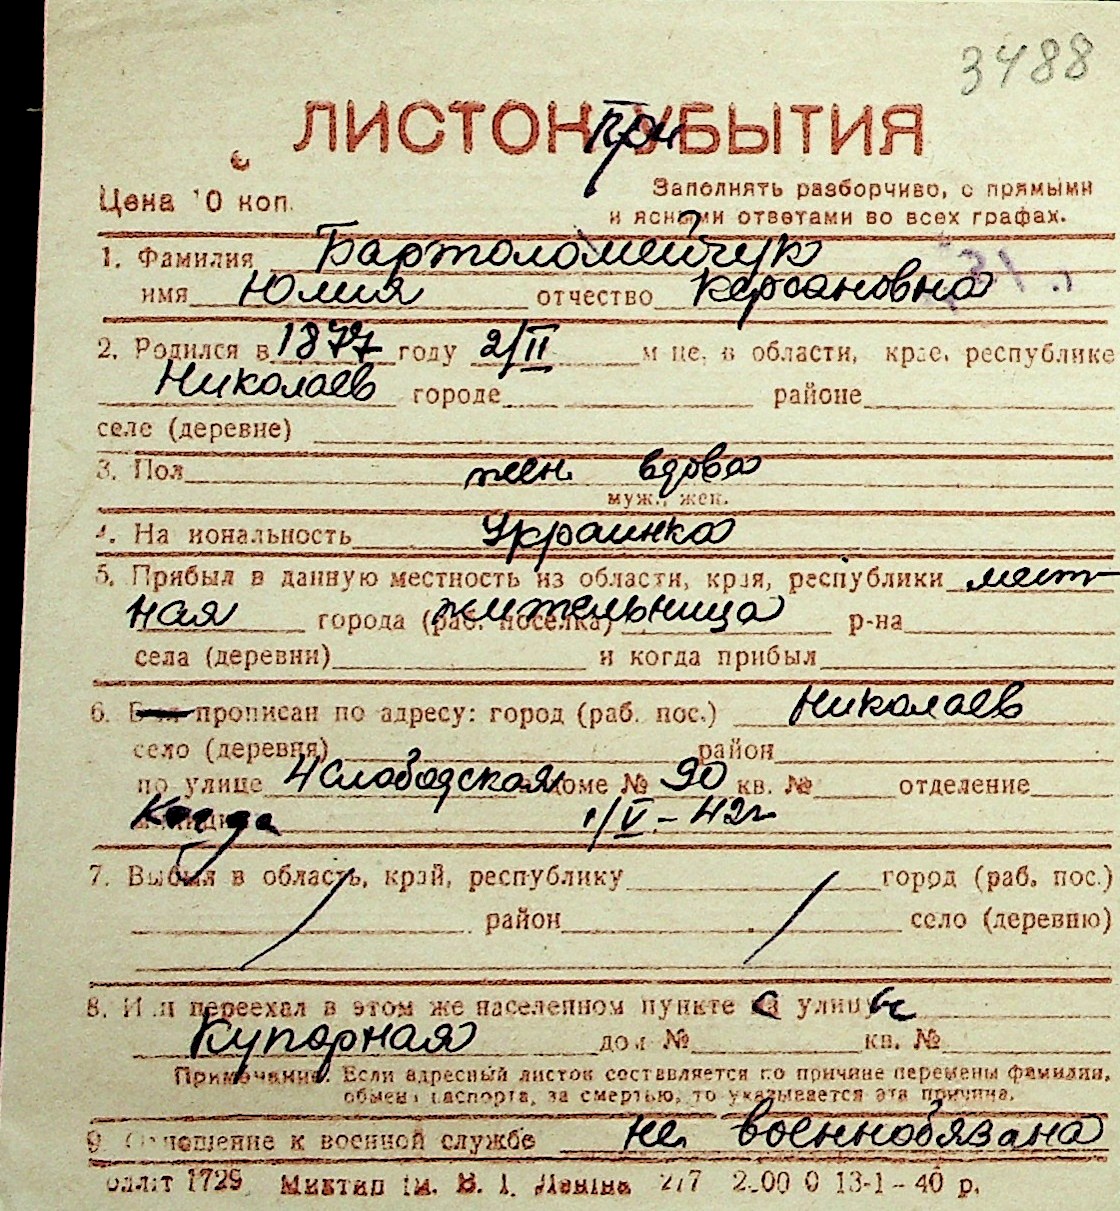 3488
ЛИСТОК при УБЫТИЯ
Цена 10 коп.
Заполнять разборчиво, с прямыми
и ясными ответами во всех графах.
1. Фамилия Бартоломейчук
имя Юлия отчество Керсановна
2. Родился в 1877 году 2/II м-це, в области, крае, республике
Николаев городе районе
селе (деревне)
3. Пол жен. вдова
муж., жен.
4. Национальность Украинка
5. Прибыл в данную местность из области, края, республики мест-
ная города (раб. поселка) жительница р-на
села (деревни) и когда прибыл
6. прописан по адресу: город (раб. пос.) Николаев
село (деревня) район
по улице 4 Слободская доме № 90 кв. № отделение
Когда 1/V-42г
7. Выбыл в область, край, республику город (раб. пос.)
район село (деревню)
8. Или переехал в этом же населенном пункте с улицы
Купорная дом № кв. №
Примечание. Если адресный листок составляется по причине перемены фамилии,
обмена паспорта, за смертью, то указывается эта причина.
9 Отношение к военной службе не военнобязана
1729 им. В. І. Леніна 2.00 0 13-1-40 р.